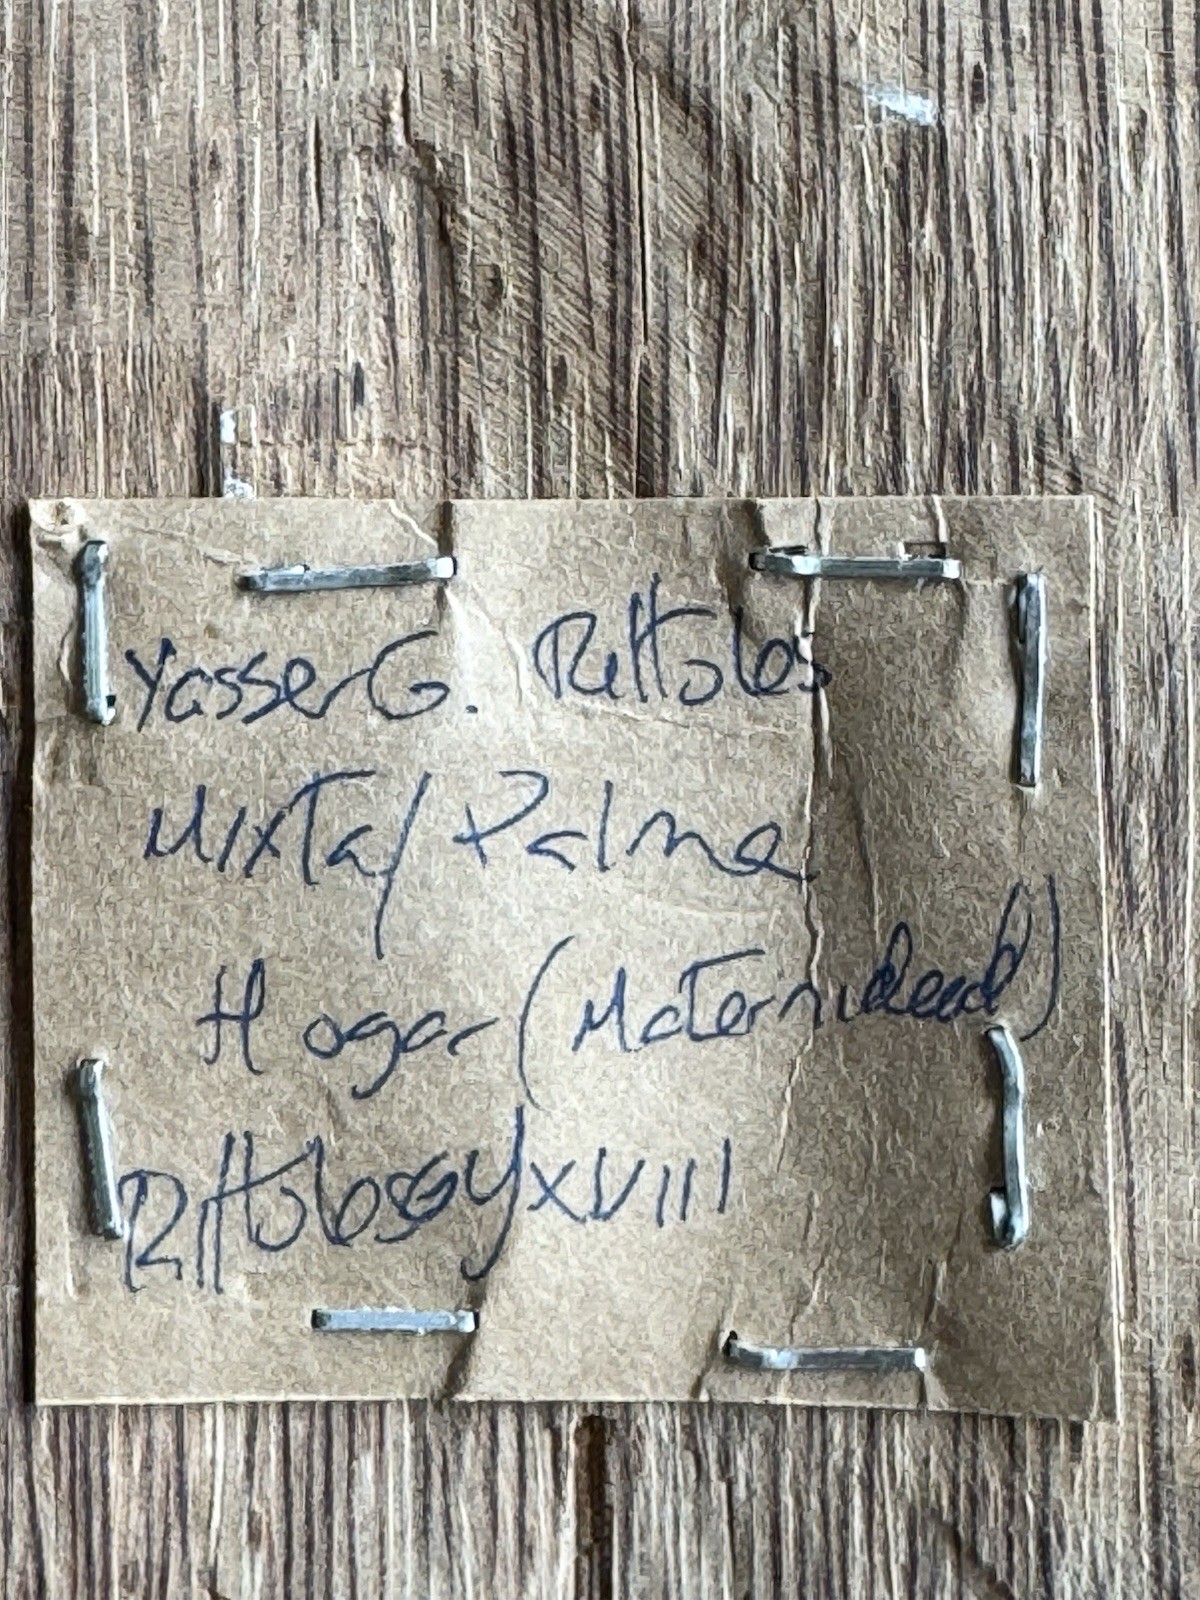 Yasser G. Rittoles
Mixta/Palma
Hogar (Maternidad)
Rittoles XVIII